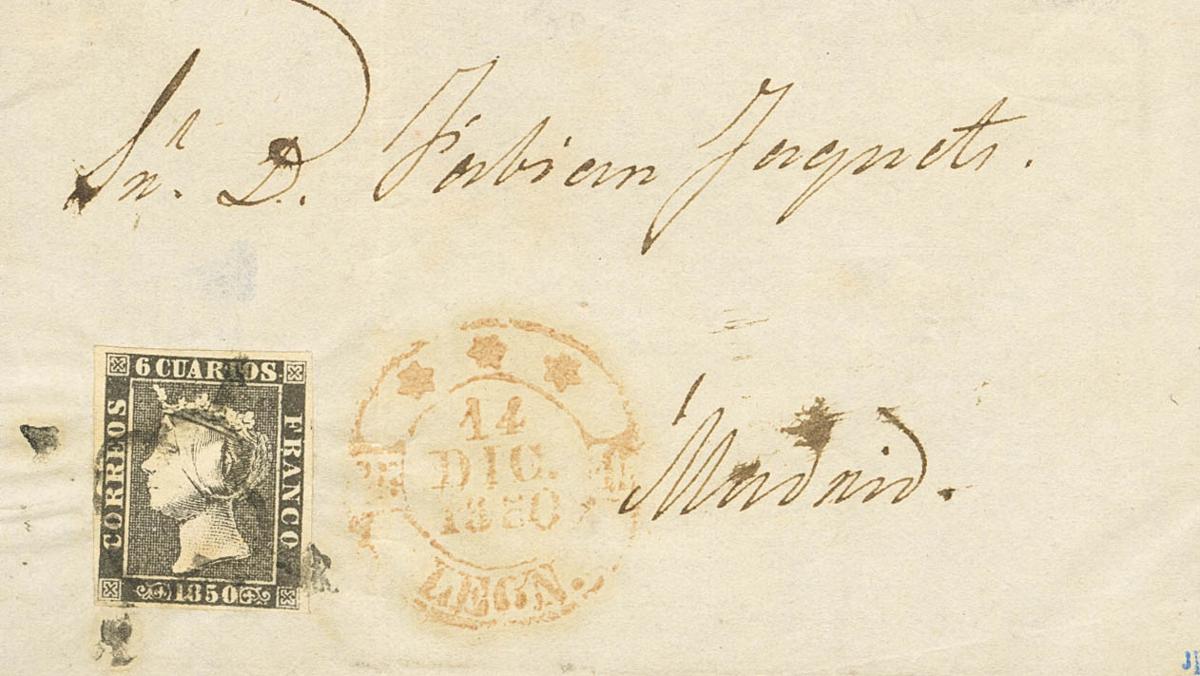 Sn.r D. Fabian Jaquete.
6 CUARTOS
CORREOS
FRANCO
1850
14
DIC.
1850
LEON.
Madrid.